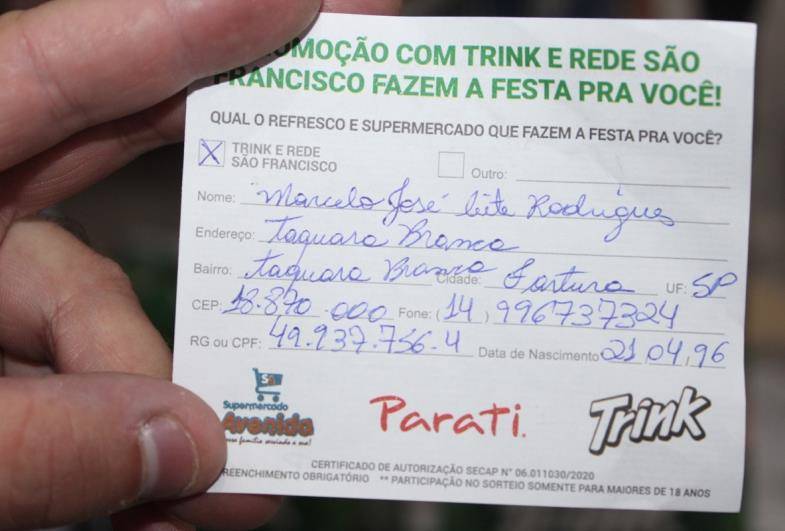 OMOÇÃO COM TRINK E REDE SÃO
FRANCISCO FAZEM A FESTA PRA VOCÊ!
QUAL O REFRESCO E SUPERMERCADO QUE FAZEM A FESTA PRA VOCÊ?
X TRINK E REDE
SÃO FRANCISCO
Outro:
Nome: Marcelo José Leite Rodrigues
Endereço: Taquara Branca
Bairro: Taquara Branca Cidade: Fartura UF: SP
CEP: 18.870.000 Fone: (14) 996737324
RG ou CPF: 49.937.756-4 Data de Nascimento 21,04,96
Supermercado
Avenida
Parati.
Trink
CERTIFICADO DE AUTORIZAÇÃO SECAP N° 06.011030/2020
REENCHIMENTO OBRIGATÓRIO ** PARTICIPAÇÃO NO SORTEIO SOMENTE PARA MAIORES DE 18 ANOS